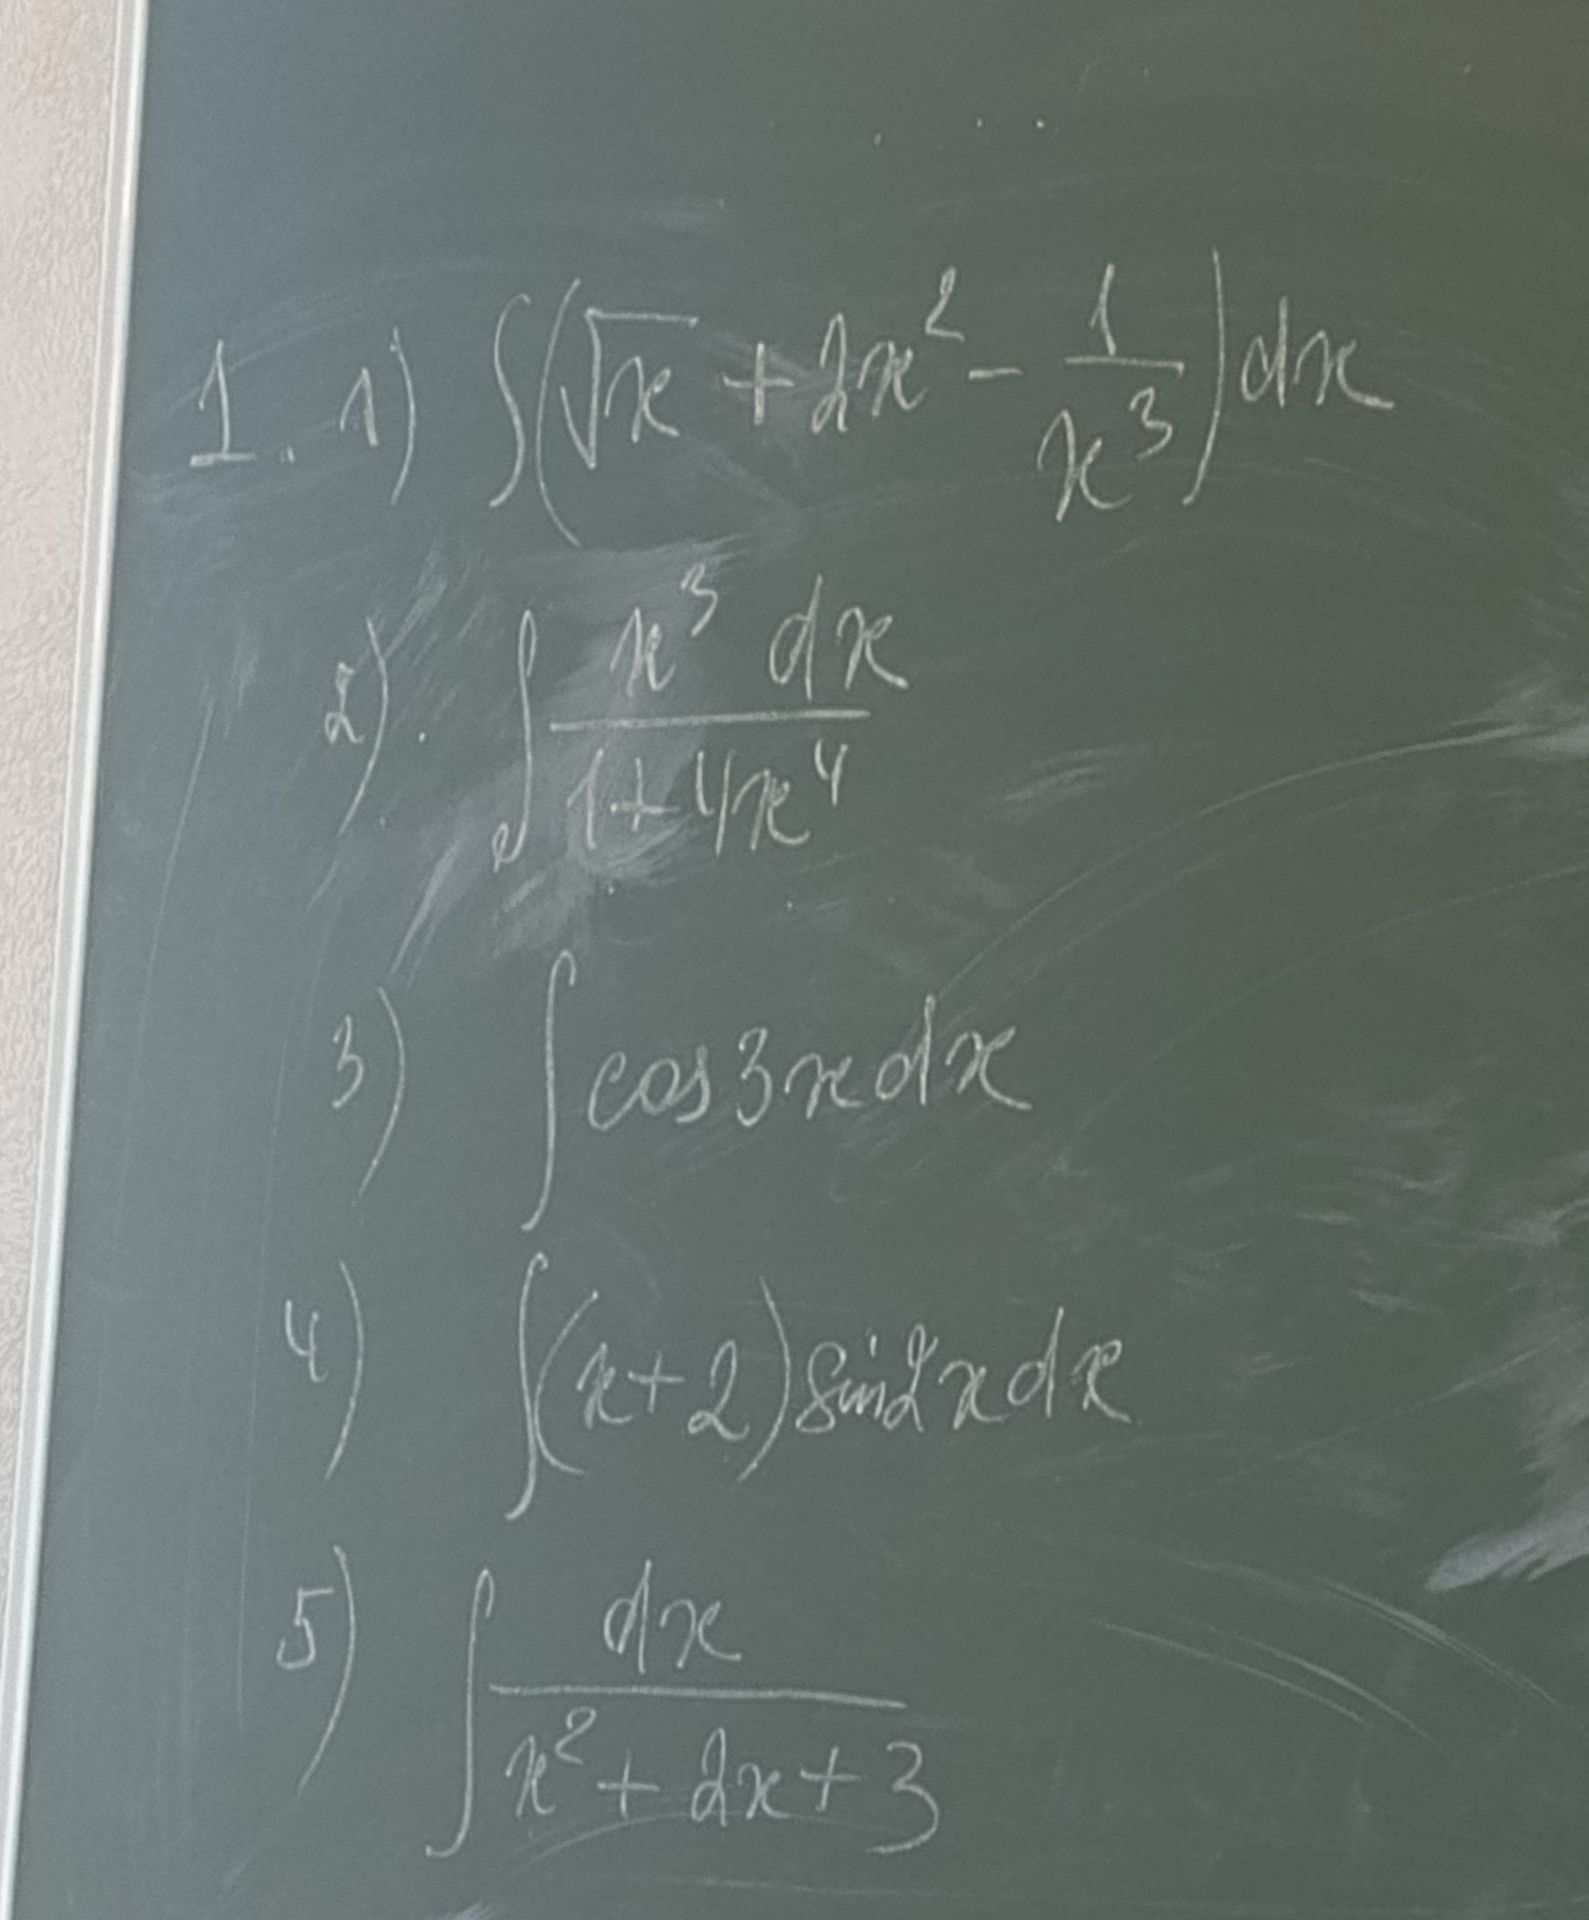 1. 1) ∫(√x + 2x² - 1/x³)dx
2). ∫ x³ dx / 1+4x⁴
3) ∫ cos3xdx
4) ∫(x+2)sin2xdx
5) ∫ dx / x²+2x+3